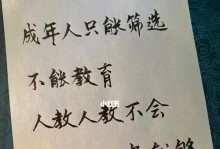 成年人只能筛选
不能教育
人教人教不会
小红书